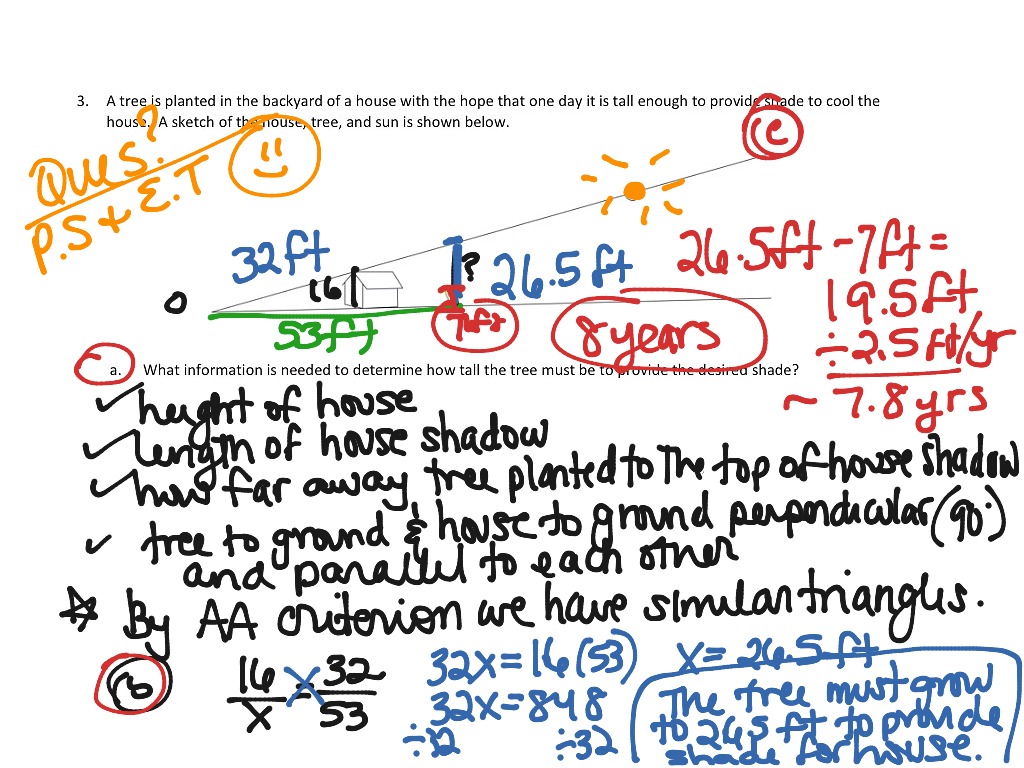 3. A tree is planted in the backyard of a house with the hope that one day it is tall enough to provide shade to cool the
house. A sketch of the house, tree, and sun is shown below.
Ques.?
P.S + E.T
c
32 ft
16
?
26.5 ft
0
53ft
7ft
8 years
26.5ft - 7ft =
19.5ft
÷ 2.5 ft/yr
~ 7.8 yrs
a. What information is needed to determine how tall the tree must be to provide the desired shade?
✓ height of house
✓ length of house shadow
✓ how far away tree planted to the top of house shadow
✓ tree to ground & house to ground perpendicular (90°)
and parallel to each other
☆ By AA criterion we have similar triangles.
b
16/x = 32/53
32x = 16(53)
32x = 848
÷32 ÷32
x = 26.5 ft
The tree must grow
to 26.5 ft to provide
shade for house.